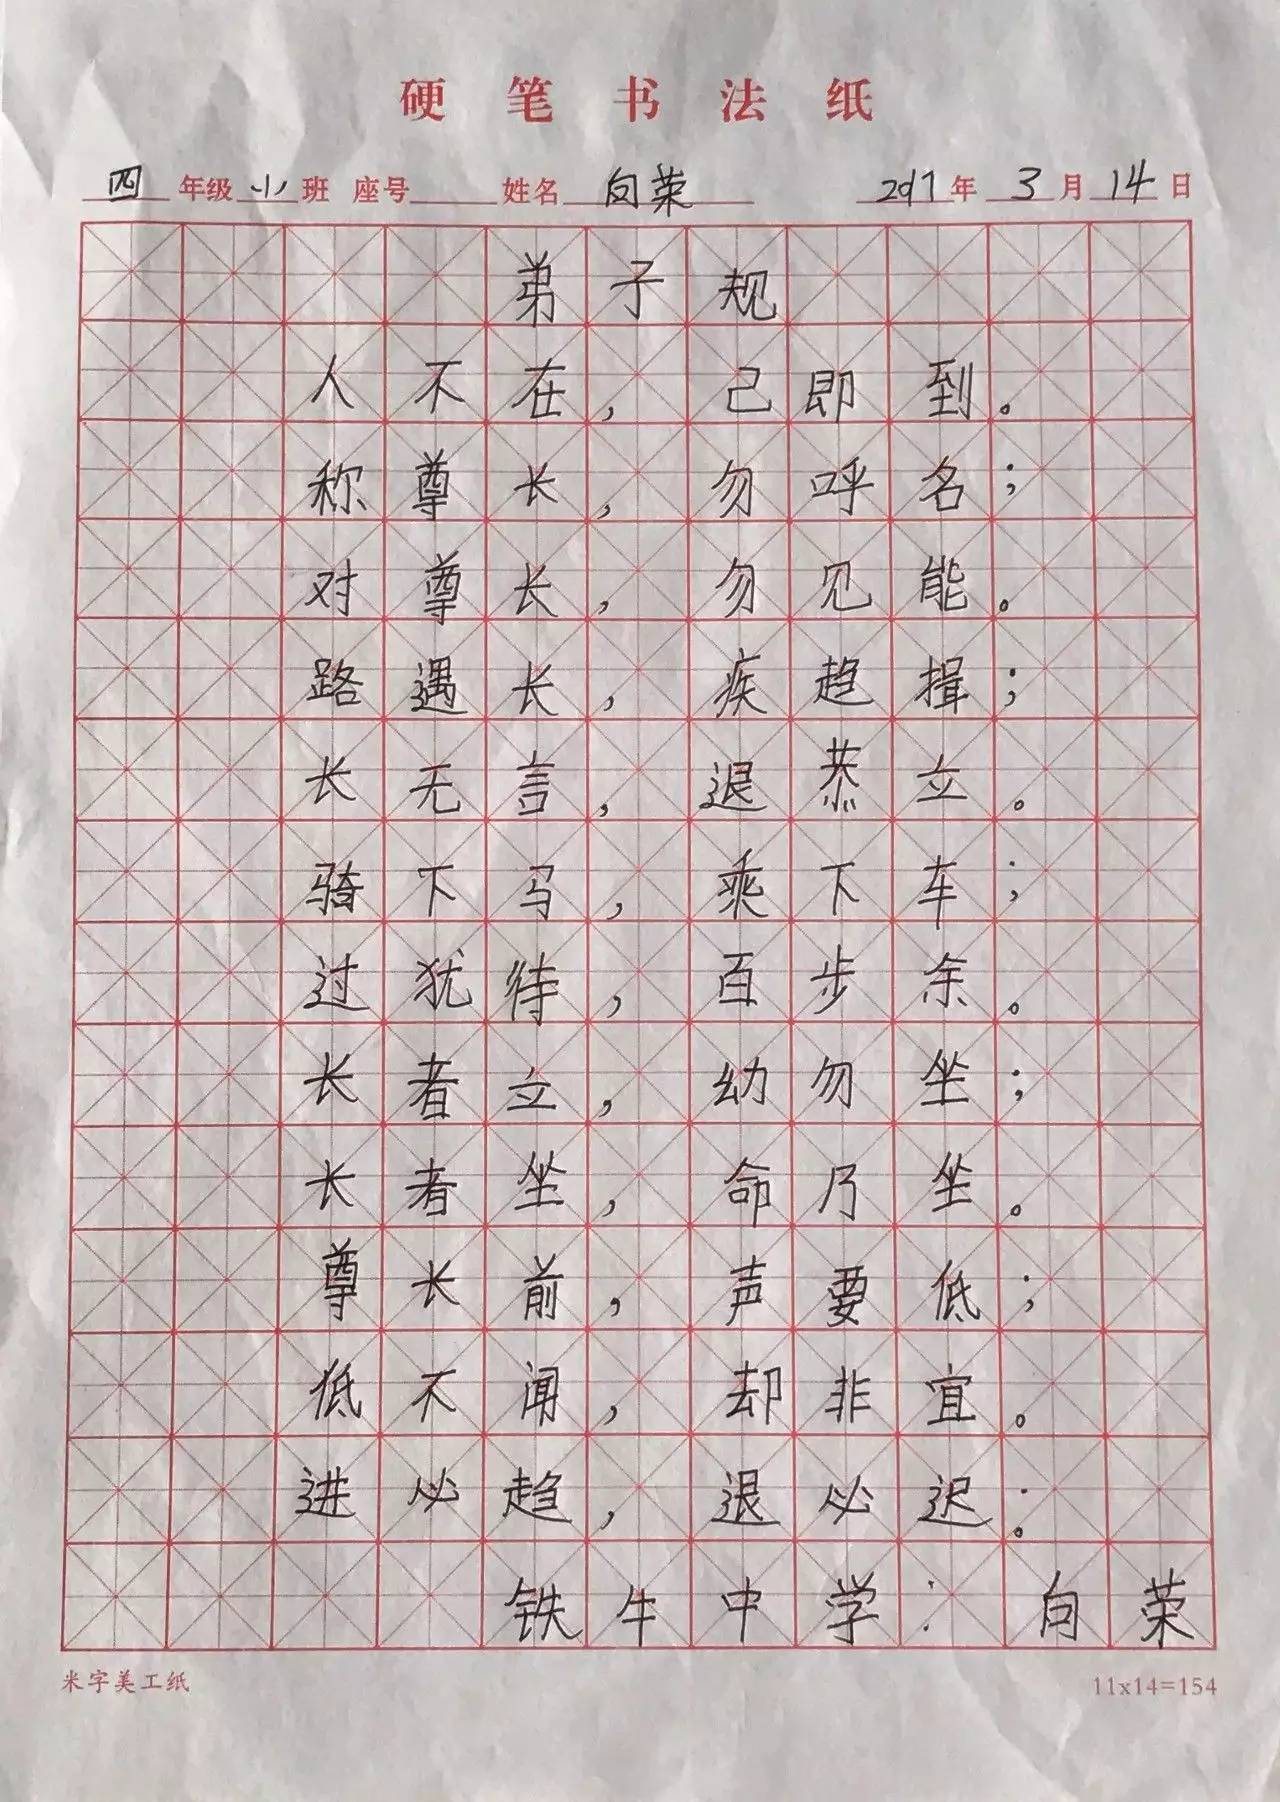 硬笔书法纸
四年级小班 座号 姓名 向荣 2017年3月14日
弟子规
人不在，己即到。
称尊长，勿呼名；
对尊长，勿见能。
路遇长，疾趋揖；
长无言，退恭立。
骑下马，乘下车；
过犹待，百步余。
长者立，幼勿坐；
长者坐，命乃坐。
尊长前，声要低；
低不闻，却非宜。
进必趋，退必迟；
铁牛中学：向荣
米字美工纸 11x14=154